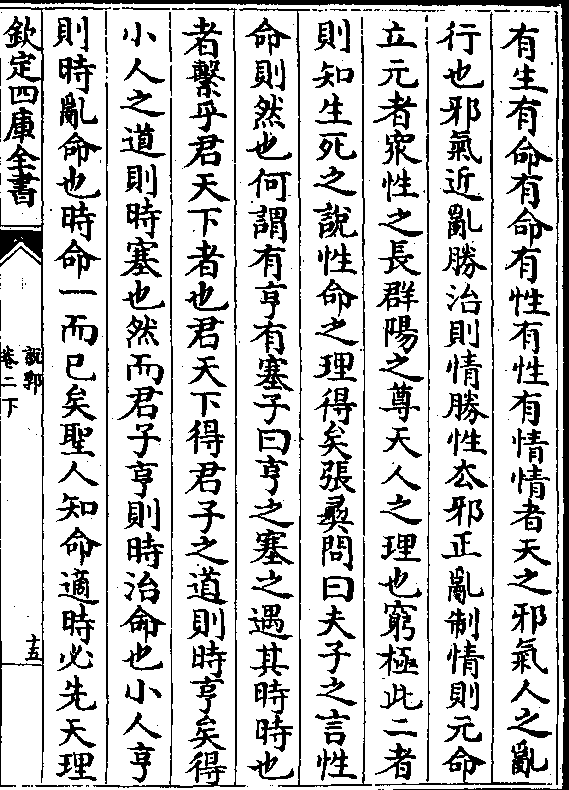 有生有命有命有性有性有情情者天之邪氣人之亂
行也邪氣近亂勝治則情勝性厺邪正亂制情則元命
立元者衆性之長群陽之尊天人之理也窮極此二者
則知生死之說性命之理得矣張彛問曰夫子之言性
命則然也何謂有亨有塞子曰亨之塞之遇其時時也
者繫乎君天下者也君天下得君子之道則時亨矣得
小人之道則時塞也然而君子亨則時治命也小人亨
則時亂命也時命一而已矣聖人知命適時必先天理
欽定四庫全書
說郛
卷二下
十五